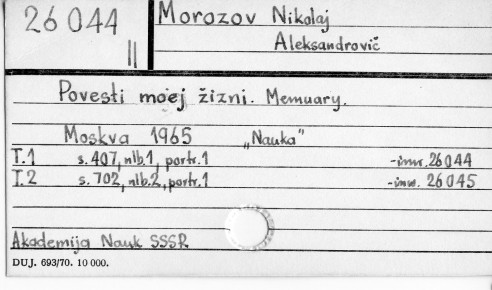 26 044
II
Morozov Nikolaj
Aleksandrovič
Povesti moej žizni. Memuary.
Moskva 1965 „Nauka"
T.1 s. 407, nlb.1, portr.1 -inw. 26044
T.2 s. 702, nlb.2, portr.1 -inw. 26045
Akademija Nauk SSSR
DUJ. 693/70. 10 000.